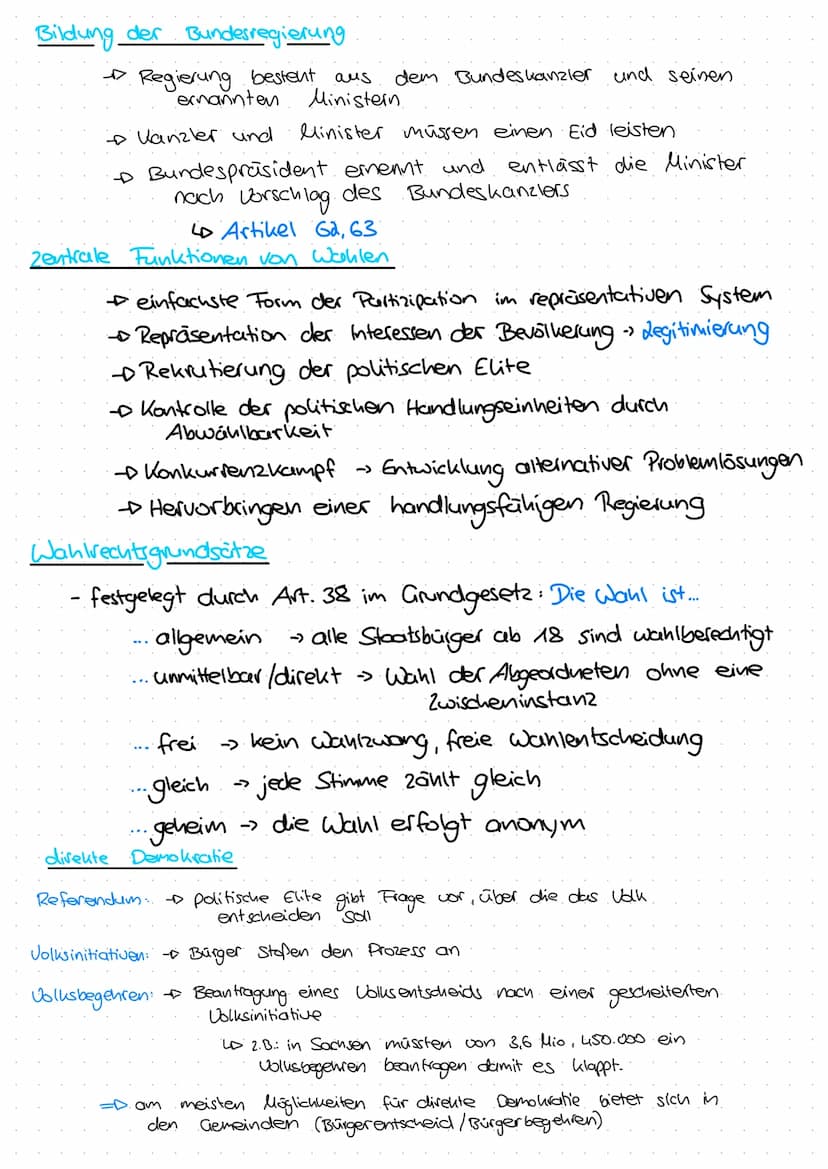 Bildung der Bundesregierung
→ Regierung besteht aus dem Bundeskanzler und seinen
ernannten Ministern
→ Kanzler und Minister müssen einen Eid leisten
→ Bundespräsident ernennt und entlässt die Minister
nach Vorschlag des Bundeskanzlers
↳ Artikel 62, 63
zentrale Funktionen von Wahlen
→ einfachste Form der Partizipation im repräsentativen System
→ Repräsentation der Interessen der Bevölkerung → Legitimierung
→ Rekrutierung der politischen Elite
→ Kontrolle der politischen Handlungseinheiten durch
Abwählbarkeit
→ Konkurrenzkampf → Entwicklung alternativer Problemlösungen
→ Hervorbringen einer handlungsfähigen Regierung
Wahlrechtsgrundsätze
- festgelegt durch Art. 38 im Grundgesetz: Die Wahl ist...
... allgemein → alle Staatsbürger ab 18 sind wahlberechtigt
... unmittelbar/direkt → Wahl der Abgeordneten ohne eine
Zwischeninstanz
... frei → kein Wahlzwang, freie Wahlentscheidung
... gleich → jede Stimme zählt gleich
... geheim → die Wahl erfolgt anonym
direkte Demokratie
Referendum: → politische Elite gibt Frage vor, über die das Volk
entscheiden soll
Volksinitiativen: → Bürger stoßen den Prozess an
Volksbegehren: → Beantragung eines Volksentscheids nach einer gescheiterten
Volksinitiative
↳ z.B.: in Sachsen müssten von 3,6 Mio, 450.000 ein
Volksbegehren beantragen damit es klappt.
⇒ am meisten Möglichkeiten für direkte Demokratie bietet sich in
den Gemeinden (Bürgerentscheid/Bürgerbegehren)